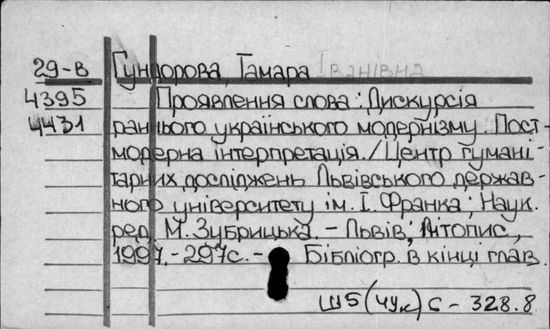 29-В Гундорова, Тамара Іванівна
4395 Проявлення слова: Дискурсія
4431 раннього українського модернізму. Пост-
модерна інтерпретація. / Центр гумані-
тарних досліджень Львівського держав-
ного університету ім. І. Франка; Наук.
ред. М. Зубрицька. - Львів; Літопис,
1997. - 297с. - Бібліогр. в кінці глав.
Ш5(4Ук)6-328.8